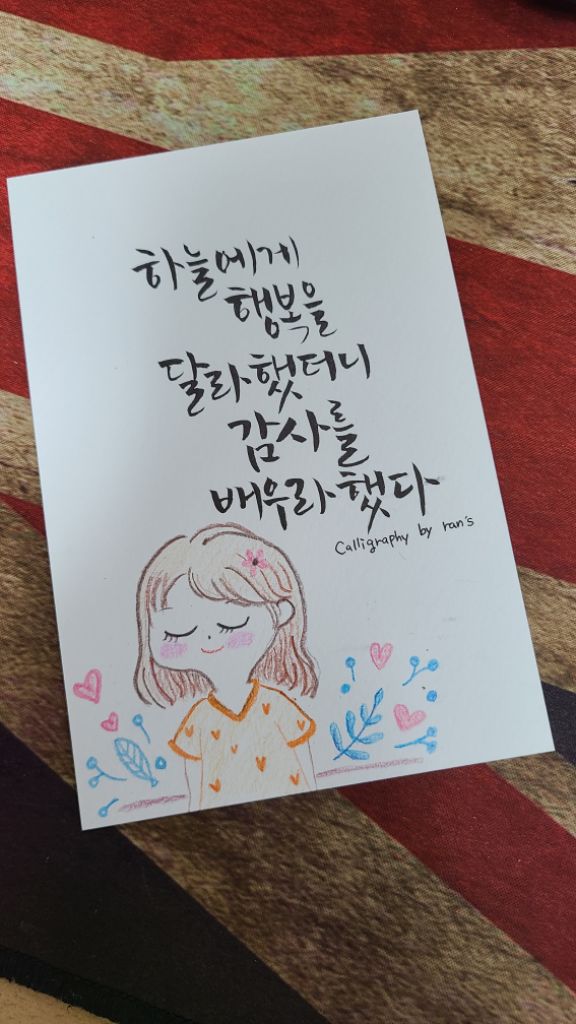 하늘에게
행복을
달라했더니
감사를
배우라했다
Calligraphy by ran's